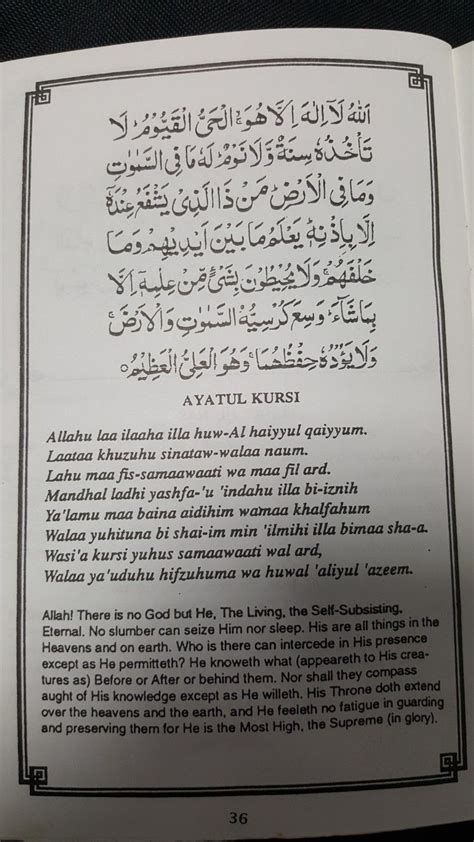 اَللّٰهُ لَاۤ اِلٰهَ اِلَّا هُوَ ۚ اَلْحَىُّ الْقَيُّوْمُ ۚ لَا
تَاْخُذُهٗ سِنَةٌ وَّلَا نَوْمٌ ؕ لَهٗ مَا فِى السَّمٰوٰتِ
وَمَا فِى الْاَرْضِ ؕ مَنْ ذَا الَّذِىْ يَشْفَعُ عِنْدَهٗۤ
اِلَّا بِاِذْنِهٖ ؕ يَعْلَمُ مَا بَيْنَ اَيْدِيْهِمْ وَمَا
خَلْفَهُمْ ۚ وَلَا يُحِيْطُوْنَ بِشَىْءٍ مِّنْ عِلْمِهٖۤ اِلَّا
بِمَا شَآءَ ۚ وَسِعَ كُرْسِيُّهُ السَّمٰوٰتِ وَالْاَرْضَ ۚ
وَلَا يَؤُدُهٗ حِفْظُهُمَا ۚ وَهُوَ الْعَلِىُّ الْعَظِيْمُ
AYATUL KURSI
Allahu laa ilaaha illa huw-Al haiyyul qaiyyum.
Laataa khuzuhu sinataw-walaa naum.
Lahu maa fis-samaawaati wa maa fil ard.
Mandhal ladhi yashfa-'u 'indahu illa bi-iznih
Ya'lamu maa baina aidihim wamaa khalfahum
Walaa yuhituna bi shai-im min 'ilmihi illa bimaa sha-a.
Wasi'a kursi yuhus samaawaati wal ard,
Walaa ya'uduhu hifzuhuma wa huwal 'aliyul 'azeem.
Allah! There is no God but He, The Living, the Self-Subsisting,
Eternal. No slumber can seize Him nor sleep. His are all things in the
Heavens and on earth. Who is there can intercede in His presence
except as He permitteth? He knoweth what (appeareth to His crea-
tures as) Before or After or behind them. Nor shall they compass
aught of His knowledge except as He willeth. His Throne doth extend
over the heavens and the earth, and He feeleth no fatigue in guarding
and preserving them for He is the Most High, the Supreme (in glory).
36